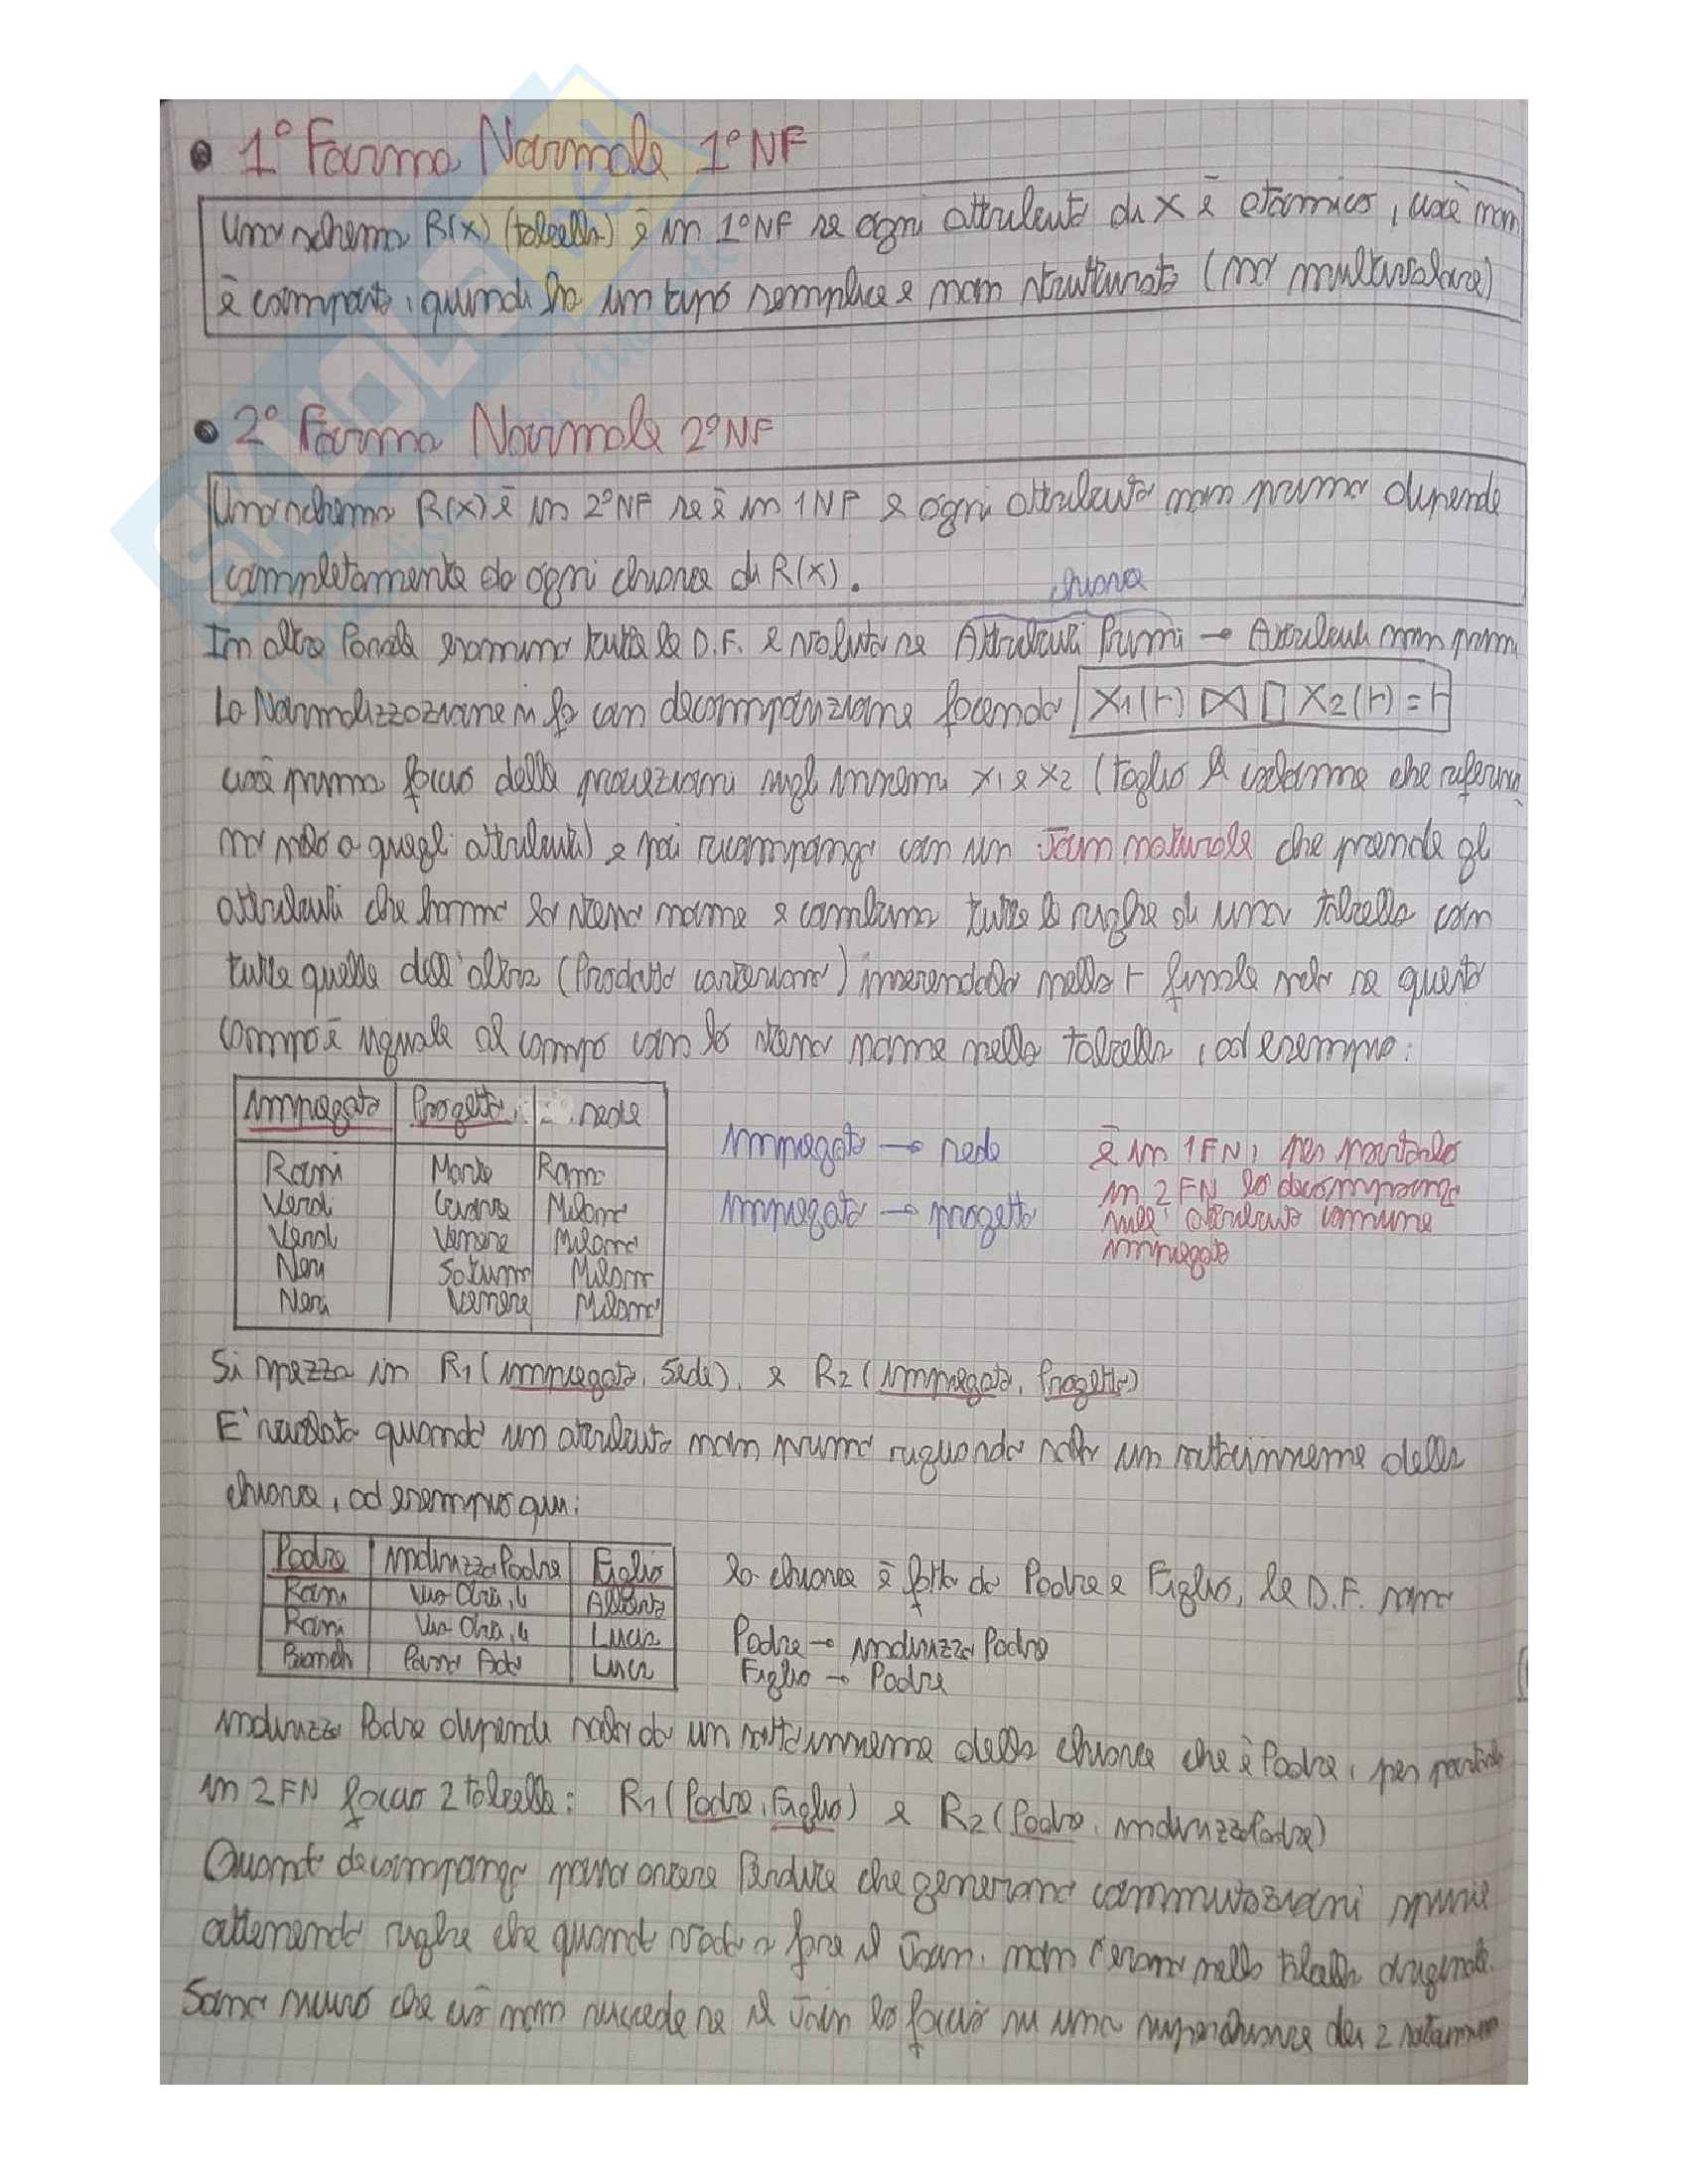 1° Forma Normale 1°NF
Uno schema R(X) (tabella) è in 1°NF se ogni attributo di X è atomico, cioè non
è composto, quindi ha un tipo semplice e non strutturato (no multivalore)
2° Forma Normale 2°NF
Uno schema R(X) è in 2°NF se è in 1NF e ogni attributo non primo dipende
completamente da ogni chiave di R(X).
chiave
In altre Parole esamino tutte le D.F. e valuto se Attributi Primi → Attributi non primi
La Normalizzazione si fa con decomposizione facendo X1(r) ⋈ ∏ X2(r) = r
cioè prima faccio delle proiezioni sugli insiemi X1 e X2 (taglio le colonne che
no solo a quegli attributi) e poi ricompongo con un Join naturale che prende gli
attributi che hanno lo stesso nome e combina tutte le righe di una tabella con
tutte quelle dell'altra (Prodotto cartesiano) inserendola nella r finale solo se questo
campo è uguale al campo con lo stesso nome nella tabella, ad esempio:
Impiegato Progetto sede
Rossi Marte Roma
Verdi Giove Milano
Verdi Venere Milano
Neri Saturno Milano
Neri Venere Milano
Impiegato → sede
Impiegato → progetto
è in 1FN, per portarlo
in 2FN lo decompongo
sull'attributo comune
impiegato
Si spezza in R1 (impiegato, Sede), e R2 (impiegato, Progetto)
E' violata quando un attributo non primo riguarda solo un sottoinsieme della
chiave, ad esempio qui:
Padre indirizzoPadre Figlio
Rossi Via Chia, 4
Rossi Via Chia, 4 Lucia
Bianchi Luca
la chiave è fatta da Padre e Figlio, le D.F. sono
Padre → indirizzo Padre
Figlio → Padre
indirizzo Padre dipende solo da un sottoinsieme della chiave che è Padre, per portarlo
in 2FN faccio 2 tabelle: R1 (Padre, Figlio) e R2 (Padre, indirizzoPadre)
Quando decompongo posso avere Perdite che generano commutazioni spurie
ottenendo righe che quando vado a fare il Join, non c'erano nella tabella originale.
Sono sicuro che ciò non succede se il Join lo faccio su una superchiave dei 2